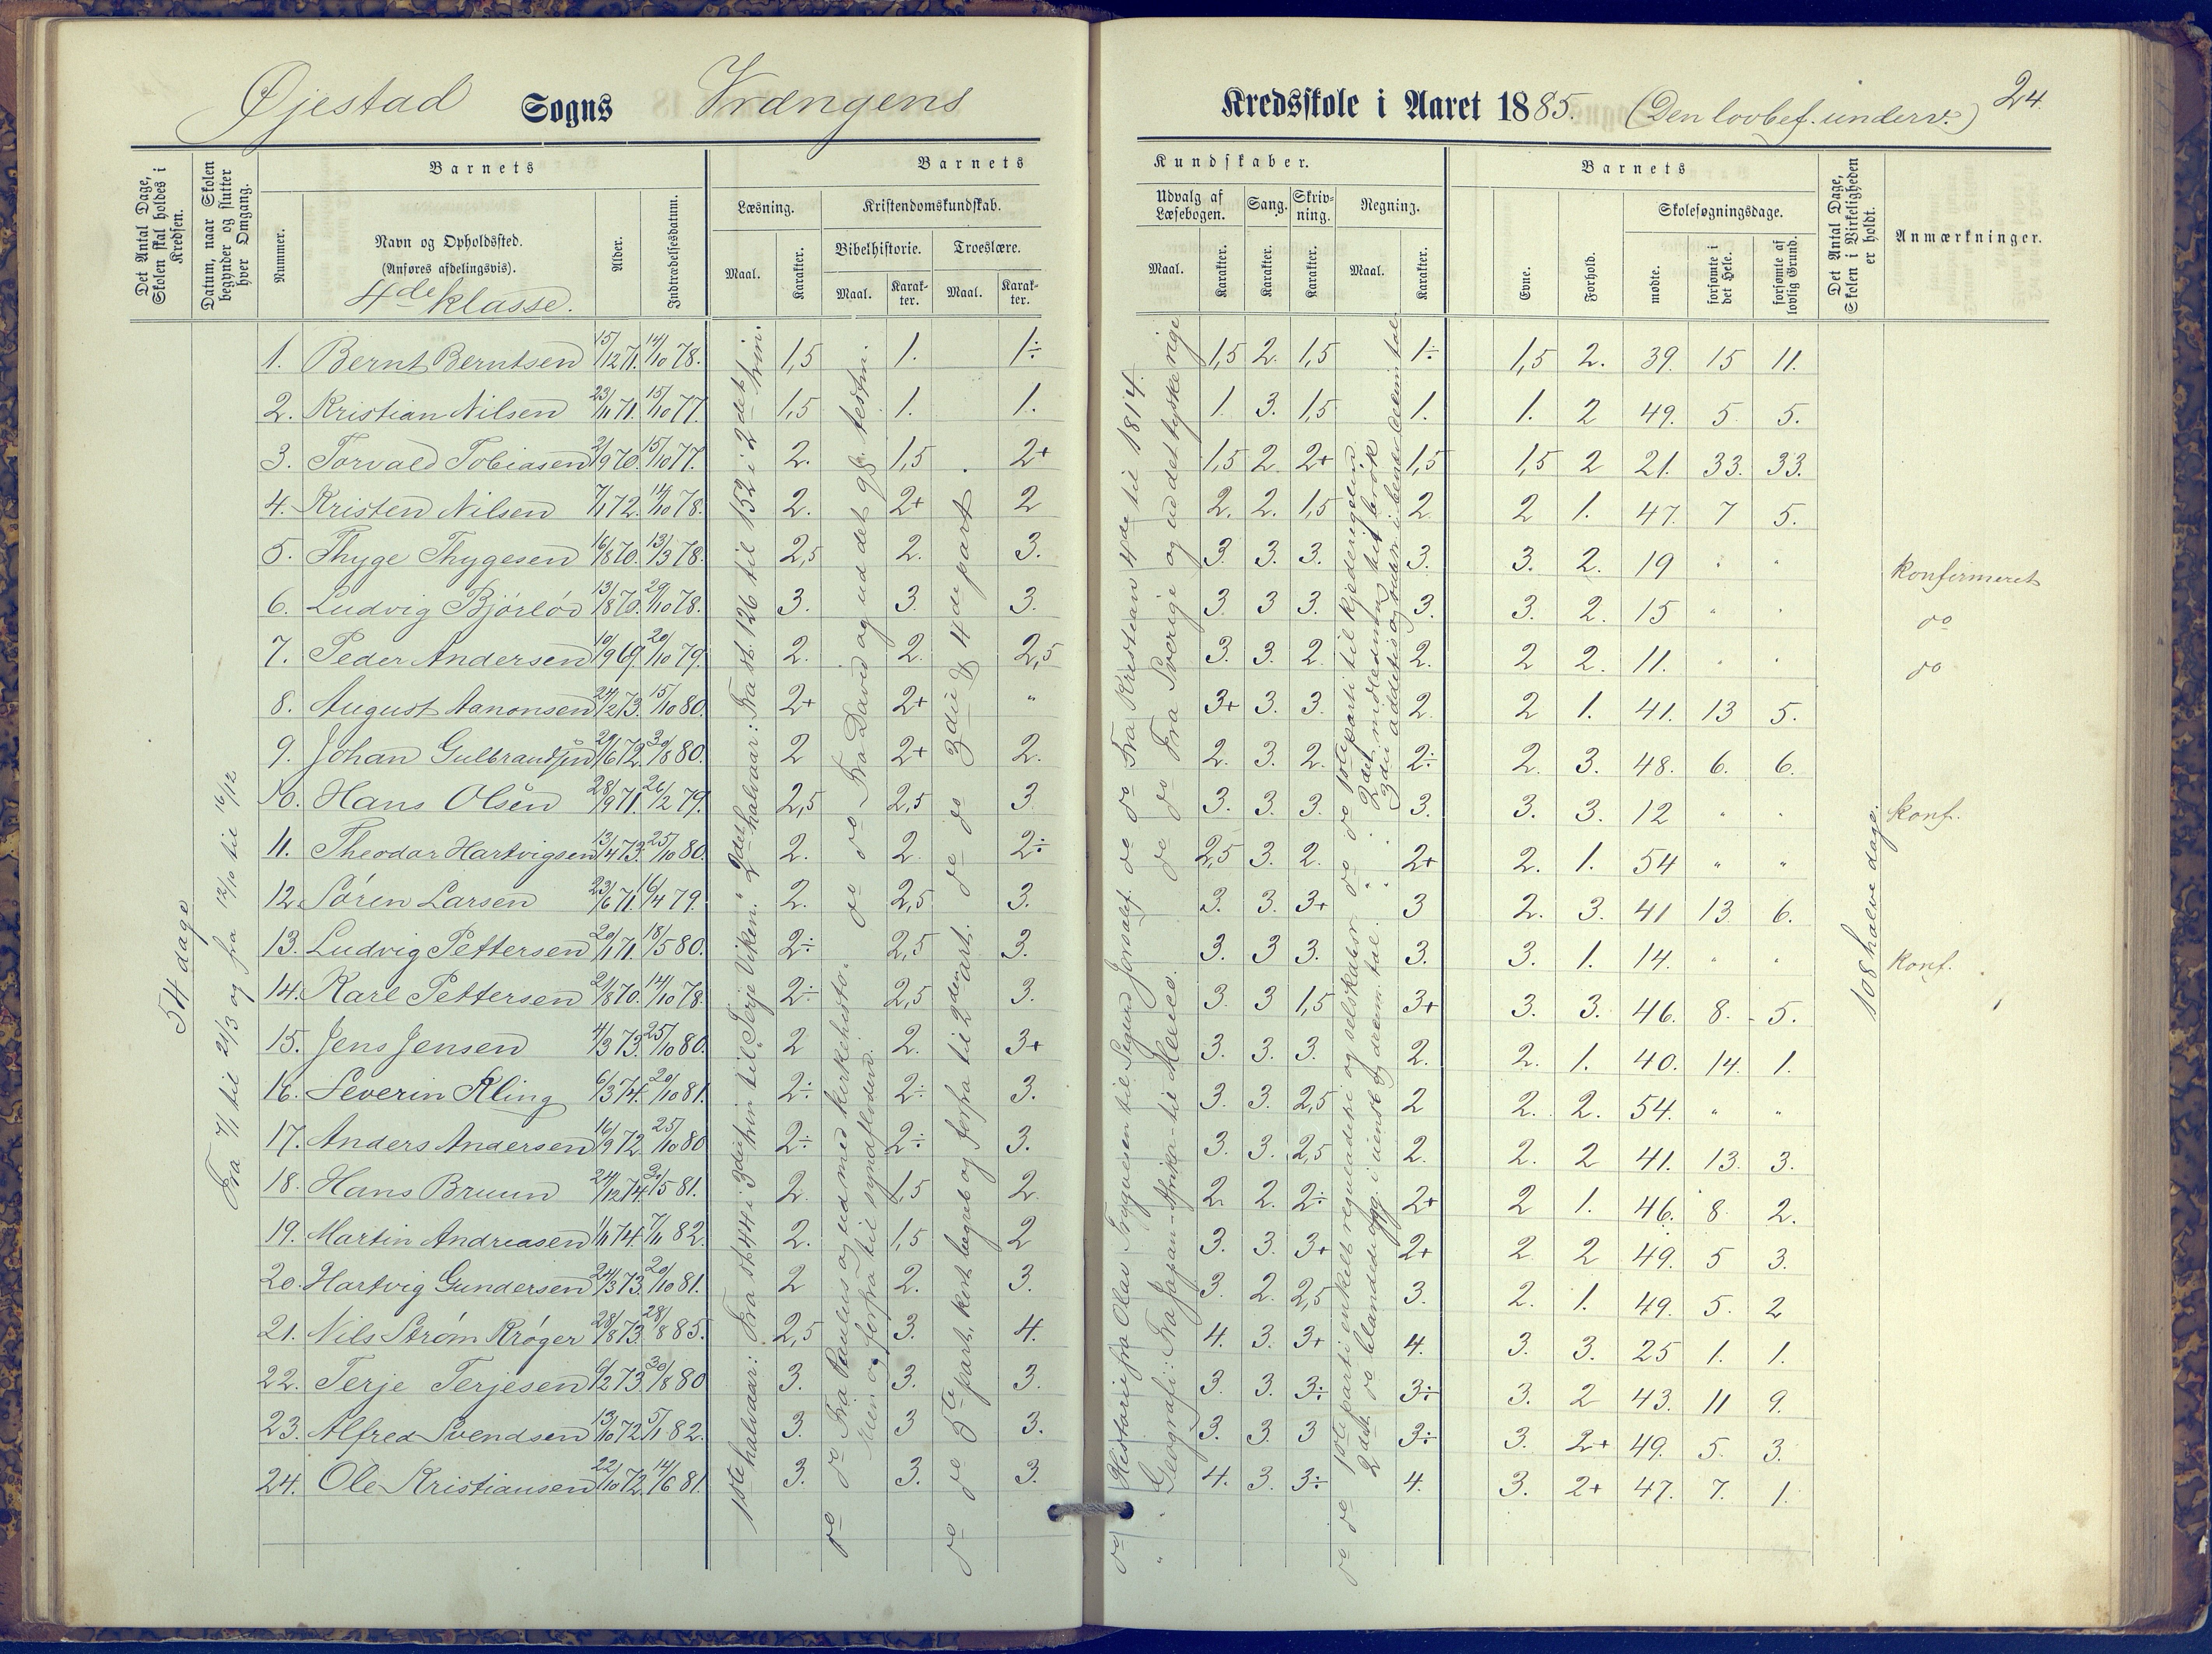 Øjestad Sogns Vrængens Kredsskole i Aaret 1885. (Den lovbef. underv.) 24.
Det Antal Dage, Skolen skal holdes i Kredsen.
Datum, naar Skolen begynder og slutter hver Omgang.
Barnets
Nummer.
Navn og Opholdssted. (Anføres afdelingsvis).
4de klasse.
Alder.
Indtrædelsesdatum.
Barnets Kundskaber.
Læsning.
Maal. Karakter.
Kristendomskundskab.
Bibelhistorie. Troeslære.
Maal. Karakter. Maal. Karakter.
Udvalg af Læsebogen.
Maal. Karakter.
Sang. Karakter.
Skrivning. Karakter.
Regning.
Maal. Karakter.
Barnets
Evne. Forhold.
Skolesøgningsdage.
mødte. forsømte i det Hele. forsømte af lovlig Grund.
Det Antal Dage, Skolen i Virkeligheden er holdt.
Anmærkninger.
54 dage
Fra 7/1 til 21/3 og fra 12/10 til 16/12
1. Bernt Berntsen 15/12 71. 14/10 78. 1,5 1. 1÷ 1,5 2. 1,5 1÷ 1,5 2. 39. 15 11.
2. Kristian Nilsen 23/11 71. 15/10 77. 1,5 1. 1. 1. 3. 1,5 1. 1. 2 49. 5 5.
3. Torvald Tobiasen 2/9 70. 15/10 77. 2. 1,5 2+ 1,5 2 2+ 1,5 1,5 2 21. 33. 33.
4. Kristen Nilsen 7/1 72. 14/10 78. 2. 2+ 2 2. 2. 1,5 2 2 1. 47. 7 5.
5. Thyge Thygesen 16/8 70. 13/3 78. 2,5 2. 3. 3. 3. 3. 3. 3. 2. 19 " " konfirmeret
6. Ludvig Bjórlóv 13/8 70. 29/10 78. 3. 3. 3. 3. 3 3. 3. 3. 2. 15 " " do
7. Peder Andersen 10/9 69. 20/10 79. 2. 2. 2,5 3. 3. 2. 2. 2 2. 11. " " do
8. August Aanonsen 24/2 73. 15/10 80. 2+ 2+ " 3+ 3. 3. 2. 2 1. 41. 13 5.
9. Johan Gulbrandsen 29/6 72. 30/8 80. 2 2+ 2. 2. 3. 2. 2÷ 2. 3. 48. 6. 6.
10. Hans Olsen 28/9 71. 26/2 79. 2,5 2,5 3 3. 3. 3. 3. 3. 3. 12 " " konf.
11. Theodor Hartvigsen 13/4 73. 25/10 80. 2. 2. 2÷ 2,5 3. 2. 2+ 2. 1. 54 " "
12. Sóren Larsen 23/6 71. 16/4 79. 2. 2,5 3. 3. 3. 3+ 3 2. 3. 41 13 6.
13. Ludvig Pettersen 20/1 71. 18/5 80. 2÷ 2,5 3. 3. 3 3. 3. 3. 1. 14. " " konf.
14. Karl Pettersen 21/8 70. 14/10 78. 2÷ 2,5 3. 3. 3 1,5 3+ 3. 3. 46. 8. 5.
15. Jens Jensen 4/3 73. 25/10 80. 2 2. 3+ 3. 3. 3. 2. 2. 1. 40. 14. 1.
16. Severin Kling 6/3 74. 20/10 81. 2÷ 2÷ 3. 3. 3. 2,5 2 2. 2. 54. " "
17. Anders Andersen 16/9 72. 25/10 80 2÷ 2÷ 3. 3. 3. 2,5 2. 2. 2 41. 13. 3.
18. Hans Bruun 24/12 74. 21/5 81. 2. 1,5 2. 2. 2. 2÷ 2+ 2 1. 46. 8 2.
19. Martin Andreasen 1/1 74. 7/11 82. 2. 1,5 2 3. 3. 3+ 2+ 2. 2 49. 5 3.
20. Hartvig Gundersen 24/3 73. 20/10 81. 2 2. 3. 3. 2. 2,5 3. 2. 1. 49. 5. 2
21. Nils Strøm Krøger 28/8 73. 28/8 85. 2,5 3. 4. 4. 3. 3+ 4. 3. 3. 25 1. 1.
22. Terje Terjesen 6/2 73. 30/8 80 3. 3. 3. 3. 3. 3÷ 3÷ 3. 2 43. 11 9.
23. Alfred Svendsen 13/10 72. 5/1 82. 3. 3 3. 3. 3. 3 3÷ 3. 2+ 49. 5. 3.
24. Ole Kristiansen 22/10 72. 14/6 81. 3. 3. 3. 4. 3. 3÷ 4. 3. 2+ 47. 7. 1.
1ste halvaar: Fra st. 44 i 3die trin til „Terje Viken." 2det halvaar: Fra st. 126 til 152 i 2det trin.
do do Fra Paulus og ud med kirkehistor. do do Fra David og ud det gl. testm.
Men og forfra til syndfloden.
do do 5te part, kort begreb og forfra til 2den art. do do 3die & 4de part.
do Historie fra Olav Trygvesen til Sigurd Jorsalf. do do Fra Kristian 4de til 1814.
" " Geografi: Fra Japan - Afrika - til Mexico. do do Fra Sverige og ud det tyske rige
do do 1ste parti enkelt reguladetri og selskabsr. do do 1ste parti til kjederegelen.
2det do blandede opg. i uensb. og decim. tal. " " 2det
108 halve dage.